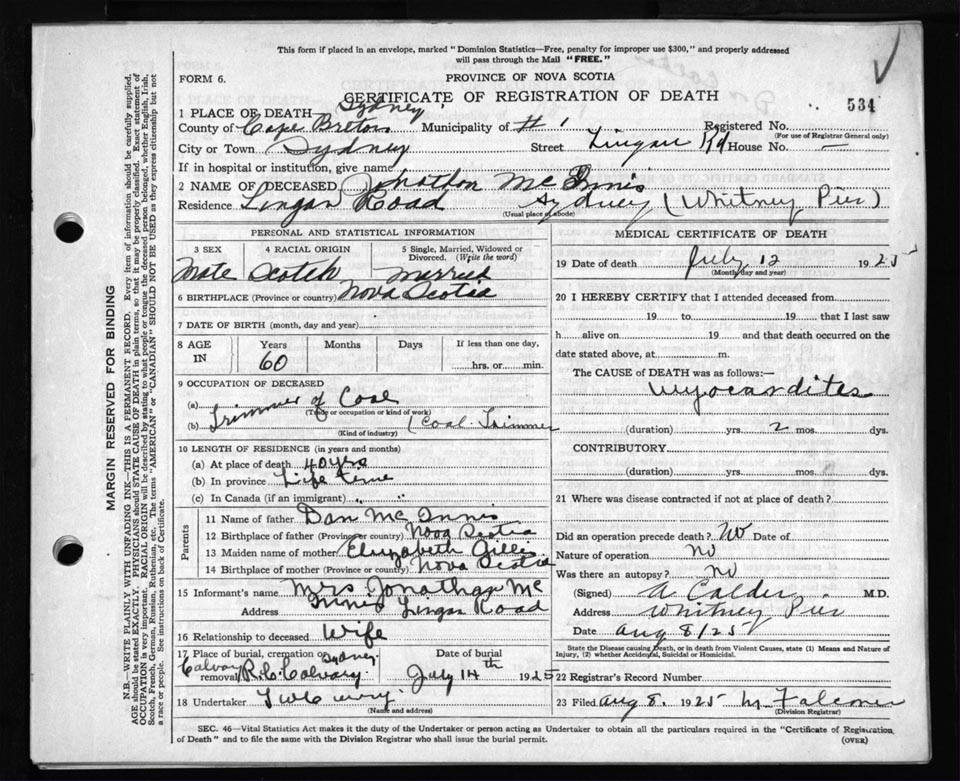 This form if placed in an envelope, marked "Dominion Statistics—Free, penalty for improper use $300," and properly addressed
will pass through the Mail "FREE."
FORM 6.
PROVINCE OF NOVA SCOTIA
CERTIFICATE OF REGISTRATION OF DEATH
534
1 PLACE OF DEATH Sydney
County of Cape Breton Municipality of #1 Registered No.
(For use of Registrar General only)
City or Town Sydney Street Lingan Rd House No. —
If in hospital or institution, give name
2 NAME OF DECEASED Jonathon McInnis
Residence Lingan Road Sydney (Whitney Pier)
(Usual place of abode)
PERSONAL AND STATISTICAL INFORMATION
3 SEX 4 RACIAL ORIGIN 5 Single, Married, Widowed or Divorced. (Write the word)
Male Scotch Married
6 BIRTHPLACE (Province or country) Nova Scotia
7 DATE OF BIRTH (month, day and year)
8 AGE IN Years Months Days If less than one day,
60 hrs. or min.
9 OCCUPATION OF DECEASED
(a) Trimmer of Coal
(Trade or occupation or kind of work)
(b) (Coal Trimmer
(Kind of industry)
10 LENGTH OF RESIDENCE (in years and months)
(a) At place of death 40 yrs
(b) In province Life time
(c) In Canada (if an immigrant) " "
Parents
11 Name of father Dan McInnis
12 Birthplace of father (Province or country) Nova Scotia
13 Maiden name of mother Elizabeth Gillis
14 Birthplace of mother (Province or country) Nova Scotia
15 Informant's name Mrs. Jonathan Mc
Address Innis Lingan Road
16 Relationship to deceased Wife
17 Place of burial, cremation or removal Sydney Date of burial
Calvary R.C. Calvary. July 14th 1925
18 Undertaker
(Name and address)
MEDICAL CERTIFICATE OF DEATH
19 Date of death July 12 1925
(Month, day and year)
20 I HEREBY CERTIFY that I attended deceased from
19 to 19 that I last saw
h alive on 19 and that death occurred on the
date stated above, at m.
The CAUSE of DEATH was as follows:—
Myocardites
(duration) yrs. 2 mos. dys.
CONTRIBUTORY
(duration) yrs. mos. dys.
21 Where was disease contracted if not at place of death?
Did an operation precede death? No Date of
Nature of operation no
Was there an autopsy? no
(Signed) A Calder M.D.
Address Whitney Pier
Date Aug 8/25
State the Disease causing Death, or in death from Violent Causes, state (1) Means and Nature of
Injury, (2) whether Accidental, Suicidal or Homicidal.
22 Registrar's Record Number
23 Filed Aug 8. 1925 M. Falconer
(Division Registrar)
SEC. 46—Vital Statistics Act makes it the duty of the Undertaker or person acting as Undertaker to obtain all the particulars required in the "Certificate of Registration
of Death" and to file the same with the Division Registrar who shall issue the burial permit.
(OVER)
MARGIN RESERVED FOR BINDING
N.B.—WRITE PLAINLY WITH UNFADING INK—THIS IS A PERMANENT RECORD. Every item of information should be carefully supplied.
AGE should be stated EXACTLY. PHYSICIANS should STATE CAUSE OF DEATH in plain terms, so that it may be properly classified. Exact statement of
OCCUPATION is very important. RACIAL ORIGIN will be described by stating to what people or tongue the deceased person belonged, whether English, Irish,
Scotch, French, German, Russian, Ruthenian, etc. The terms "AMERICAN" or "CANADIAN" SHOULD NOT BE USED as they express citizenship but not
a race or people. See instructions on back of Certificate.